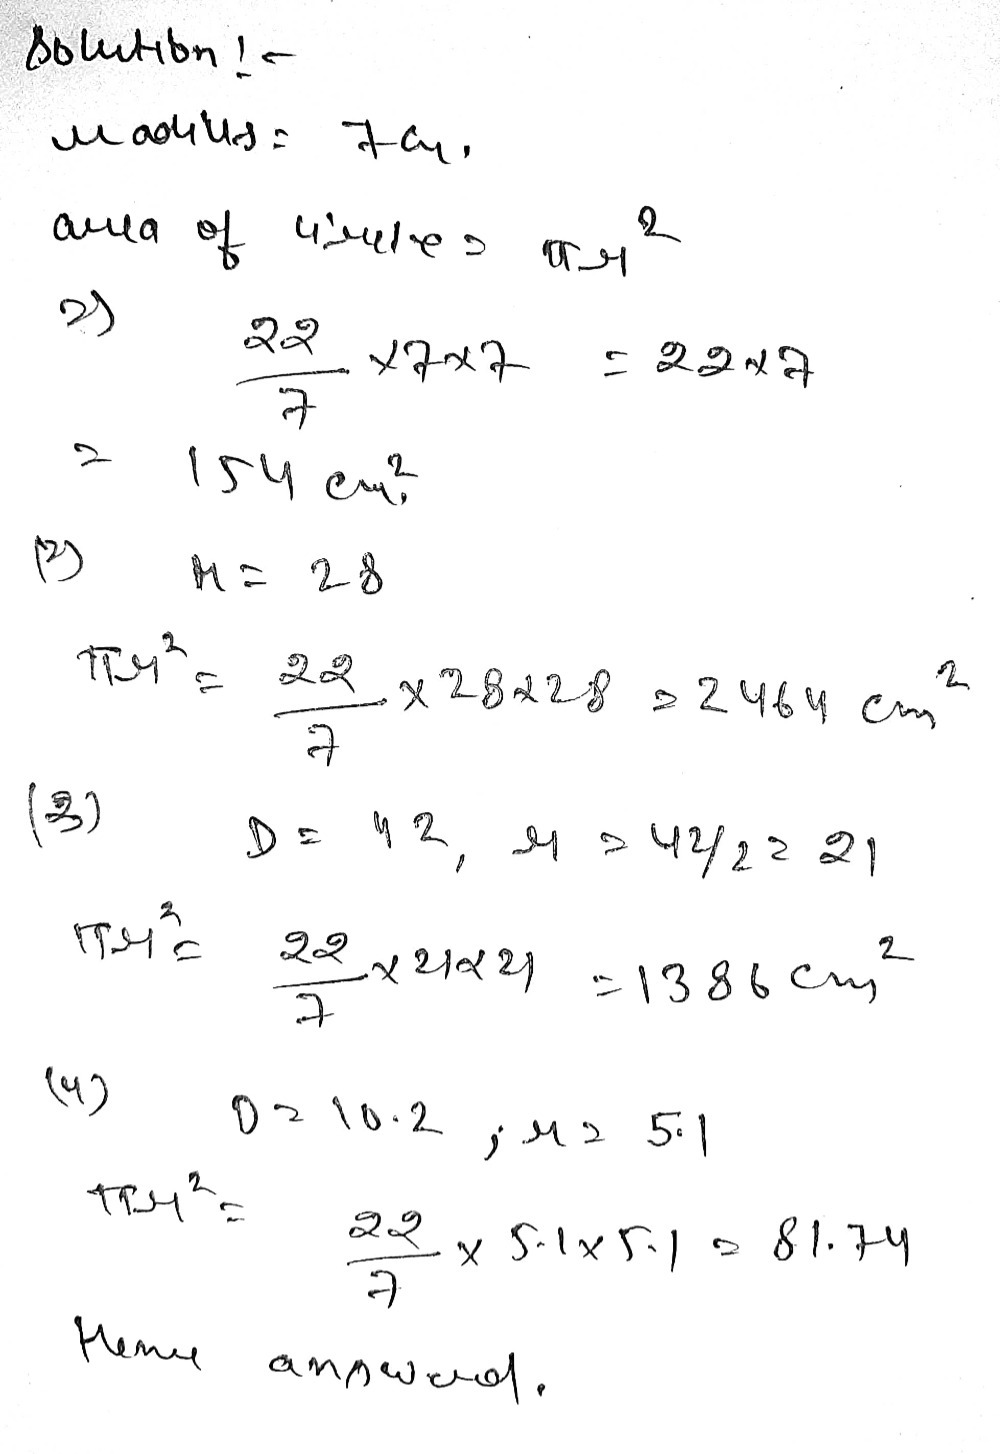 Solution :-
radius = 7cm.
area of circle = πr²
=) 22/7 ×7×7 = 22×7
= 154 cm².
(2) r = 28
πr² = 22/7 × 28×28 = 2464 cm²
(3) D = 42, r = 42/2 = 21
πr² = 22/7 × 21×21 = 1386 cm²
(4) D = 10.2 ; r = 5.1
πr² = 22/7 × 5.1×5.1 = 81.74
Hence answered.